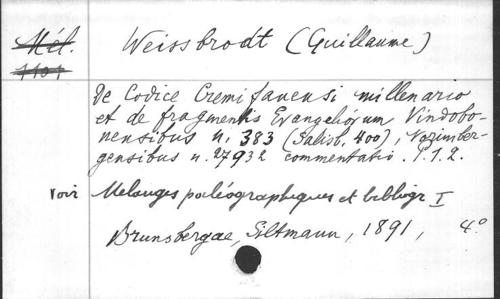 Mél.
1101
Weissbrodt (Guillaume)
De Codice Cremifanensi millenario
et de fragmentis Evangeliorum Vindobo-
nensibus n. 383 (Salisb. 400), Norimber-
gensibus n. 27932 commentatio. P. 1.2.
voir Mélanges paléographiques et bibliogr I
Brunsbergae, Siltmann, 1891, 4°